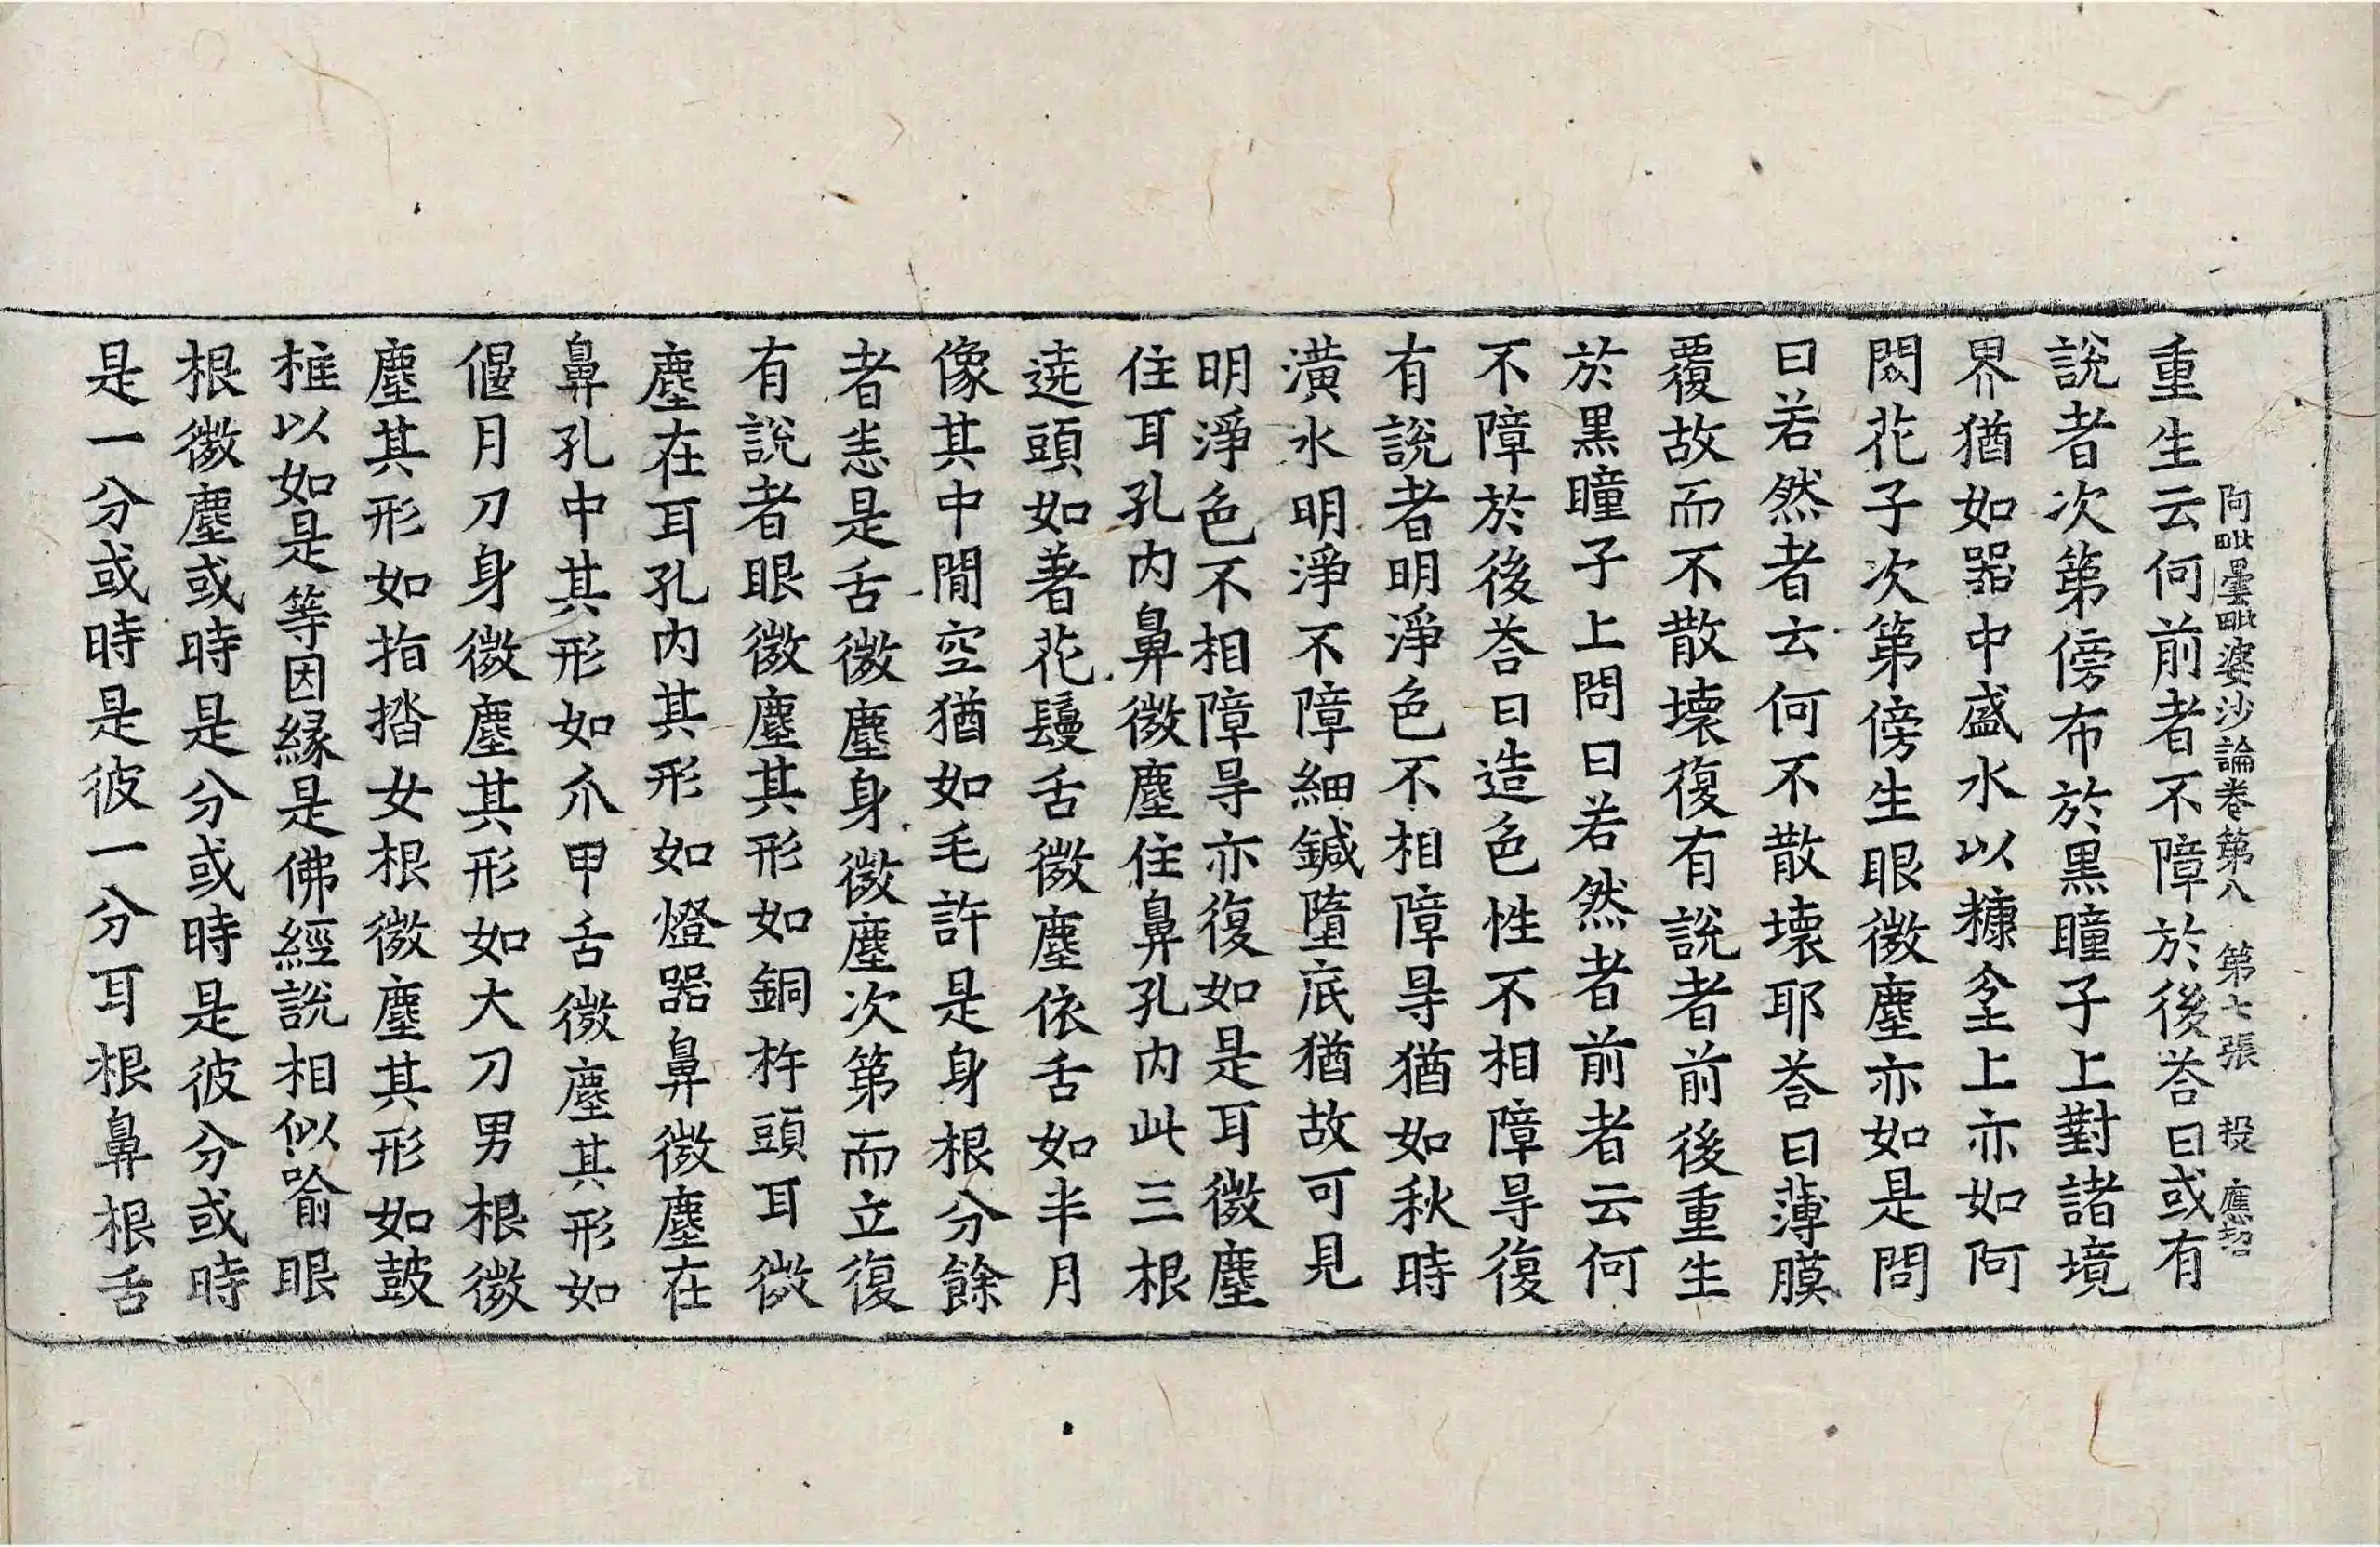 阿毗曇毗婆沙論卷第八 第七張 投 應招
重生云何前者不障於後荅曰或有
說者次第傍布於黑瞳子上對諸境
界猶如器中盛水以糠坌上亦如阿
閦花子次第傍生眼微塵亦如是問
曰若然者云何不散壞耶荅曰薄膜
覆故而不散壞復有說者前後重生
於黑瞳子上問曰若然者前者云何
不障於後荅曰造色性不相障㝵復
有說者明淨色不相障㝵猶如秋時
潢水明淨不障細鍼墮底猶故可見
明淨色不相障㝵亦復如是耳微塵
住耳孔內鼻微塵住鼻孔內此三根
遶頭如著花鬘舌微塵依舌如半月
像其中閒空猶如毛許是身根分餘
者恙是舌微塵身微塵次第而立復
有說者眼微塵其形如銅杵頭耳微
塵在耳孔內其形如燈器鼻微塵在
鼻孔中其形如爪甲舌微塵其形如
偃月刀身微塵其形如大刀男根微
塵其形如指揩女根微塵其形如鼓
𣓨以如是等因緣是佛經說相似喻眼
根微塵或時是分或時是彼分或時
是一分或時是彼一分耳根鼻根舌